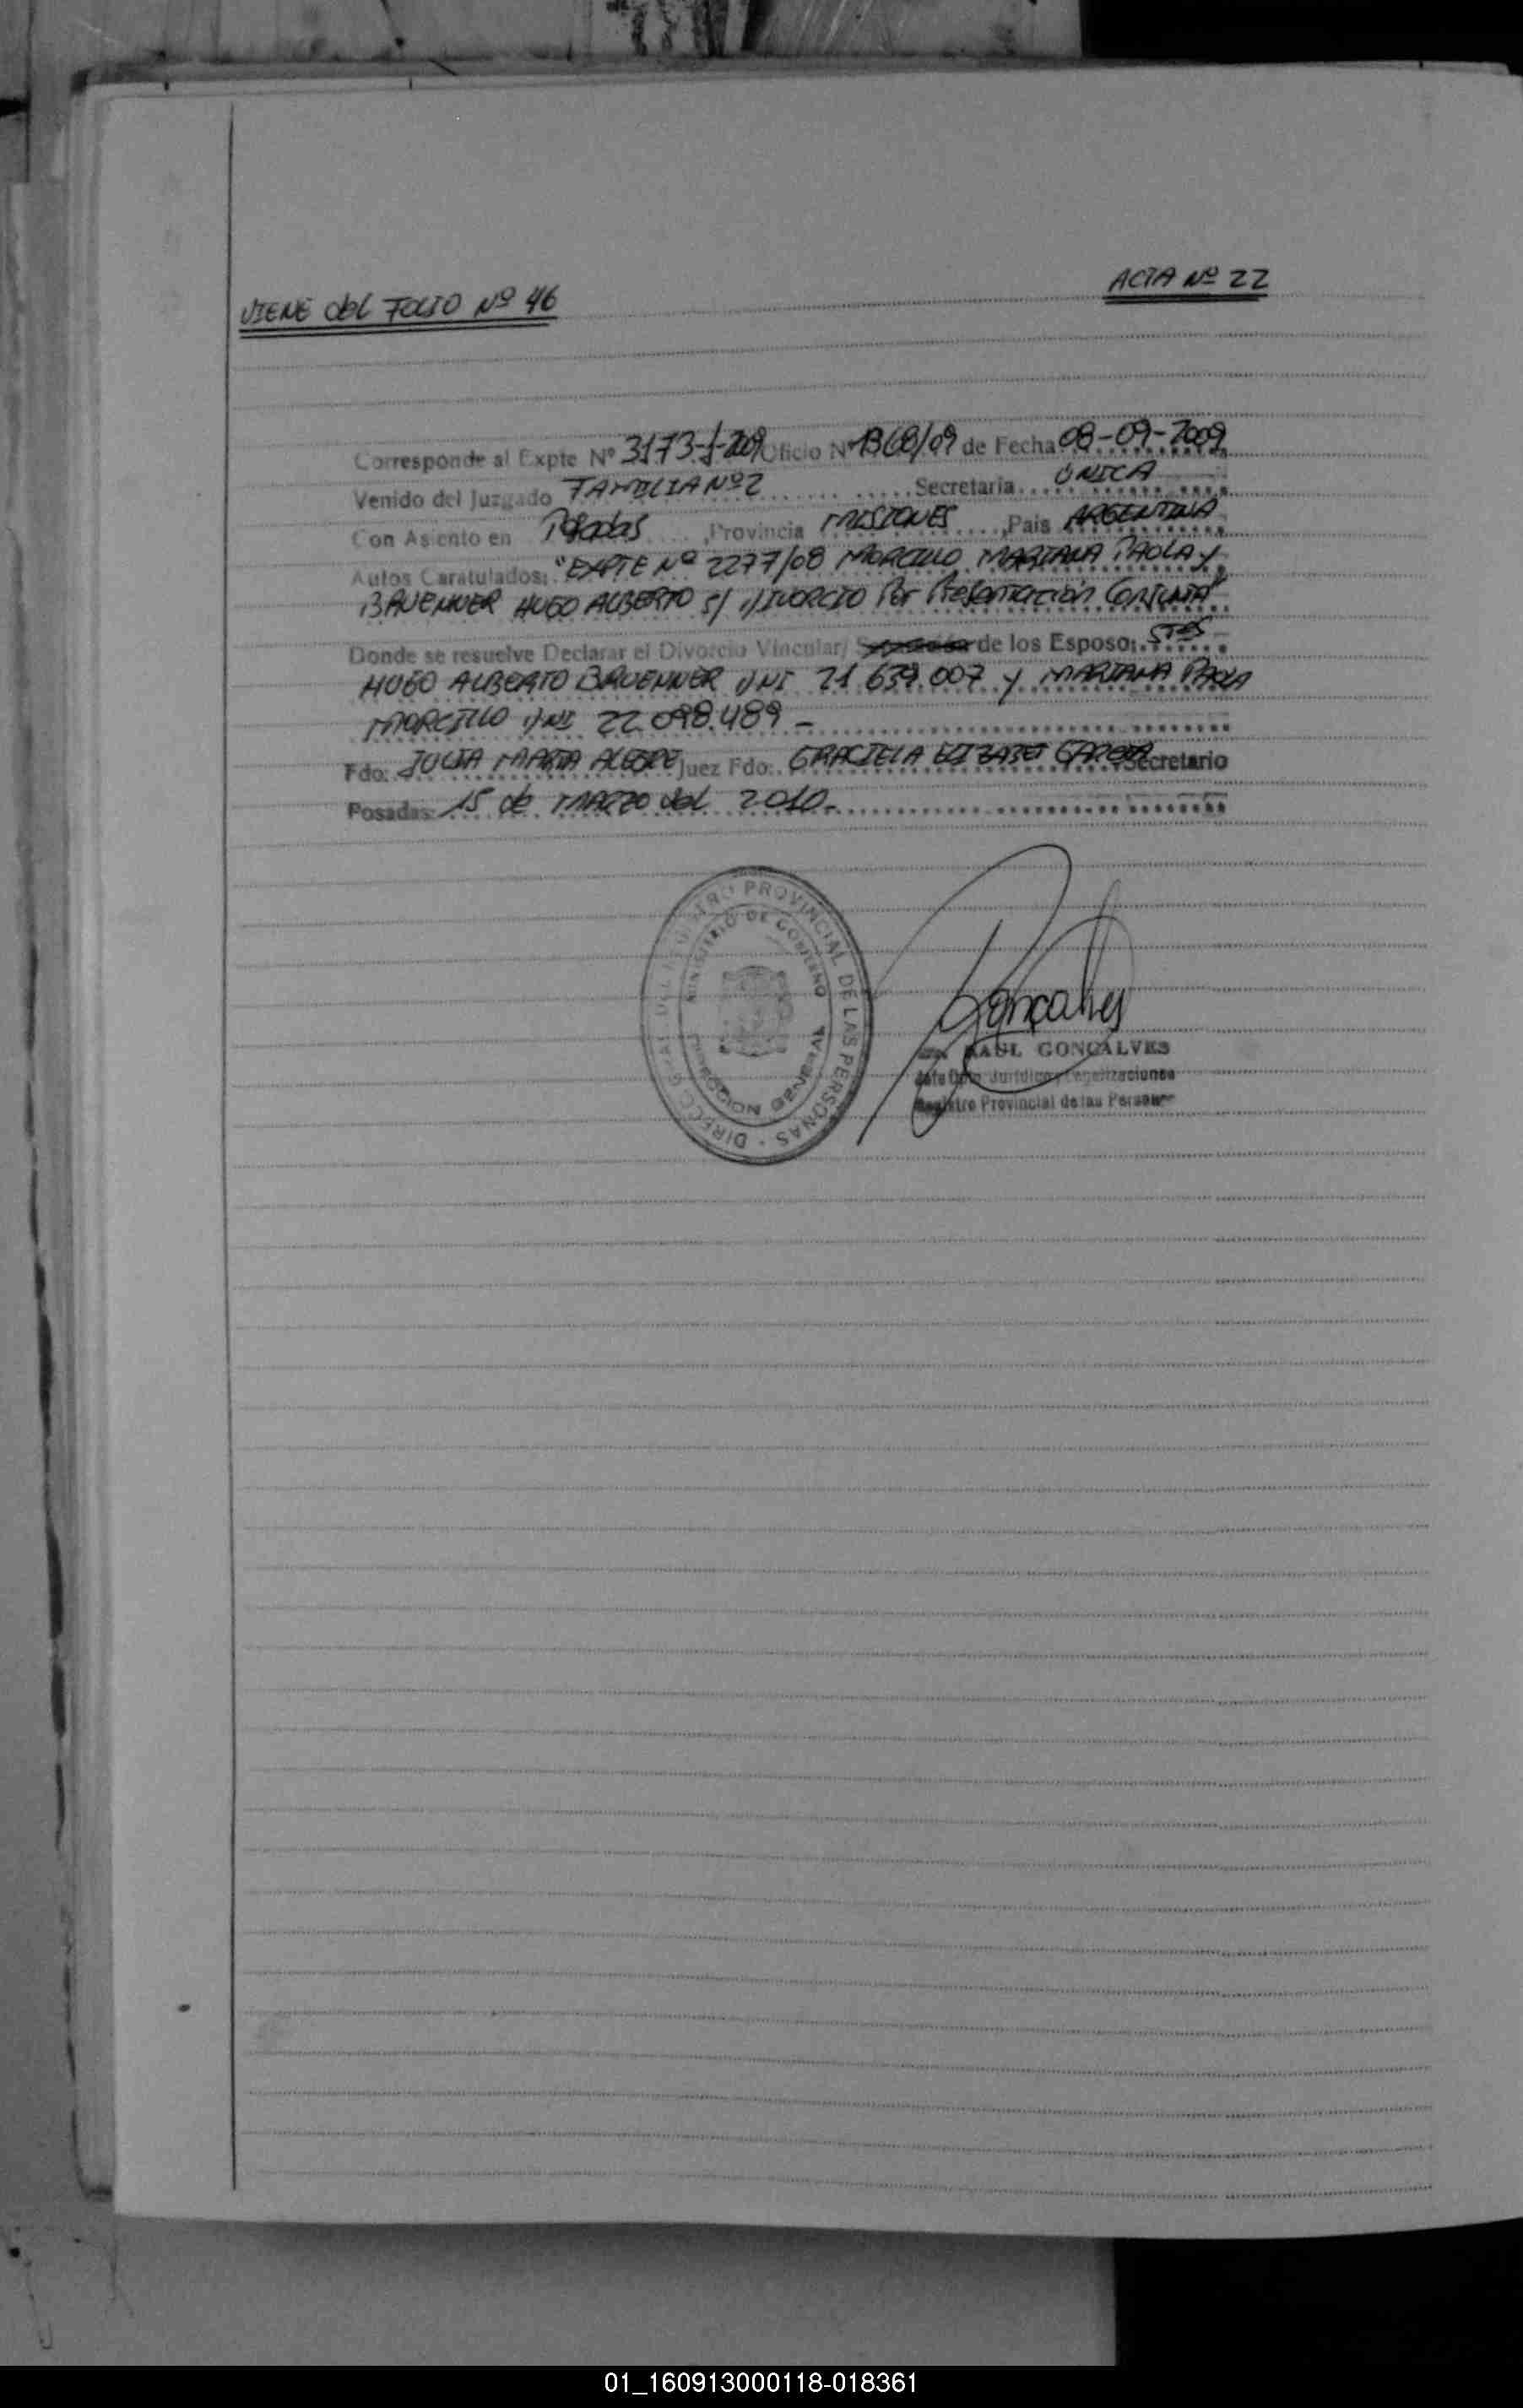 VIENE del FOLIO Nº 46
ACTA Nº 22
Corresponde al Expte Nº 3173-J-2009 Oficio Nº 1368/09 de Fecha 08-09-2009
Venido del Juzgado FAMILIA Nº 2 Secretaria UNICA
Con Asiento en Posadas, Provincia MISIONES, Pais ARGENTINA
Autos Caratulados: "EXPTE Nº 2277/08 MORCILLO MARIANA PAOLA y
BRUENNER HUGO ALBERTO s/ DIVORCIO Por Presentación CONJUNTA"
Donde se resuelve Declarar el Divorcio Vincular/ de los Esposo: Sres
HUGO ALBERTO BRUENNER DNI 21.639.007 y MARIANA PAOLA
MORCILLO DNI 22.098.489 -
Fdo: JULIA MARTA ALEGRE Juez Fdo: GRACIELA Secretario
Posadas: 15 de MARZO del 2010.-
DIRECC. GRAL. DEL REGISTRO PROVINCIAL DE LAS PERSONAS
MINISTERIO DE GOBIERNO
Goncalves
RAUL GONCALVES
Jefe Dpto. Juridico y Legalizaciones
Registro Provincial de las Personas
01_160913000118-018361